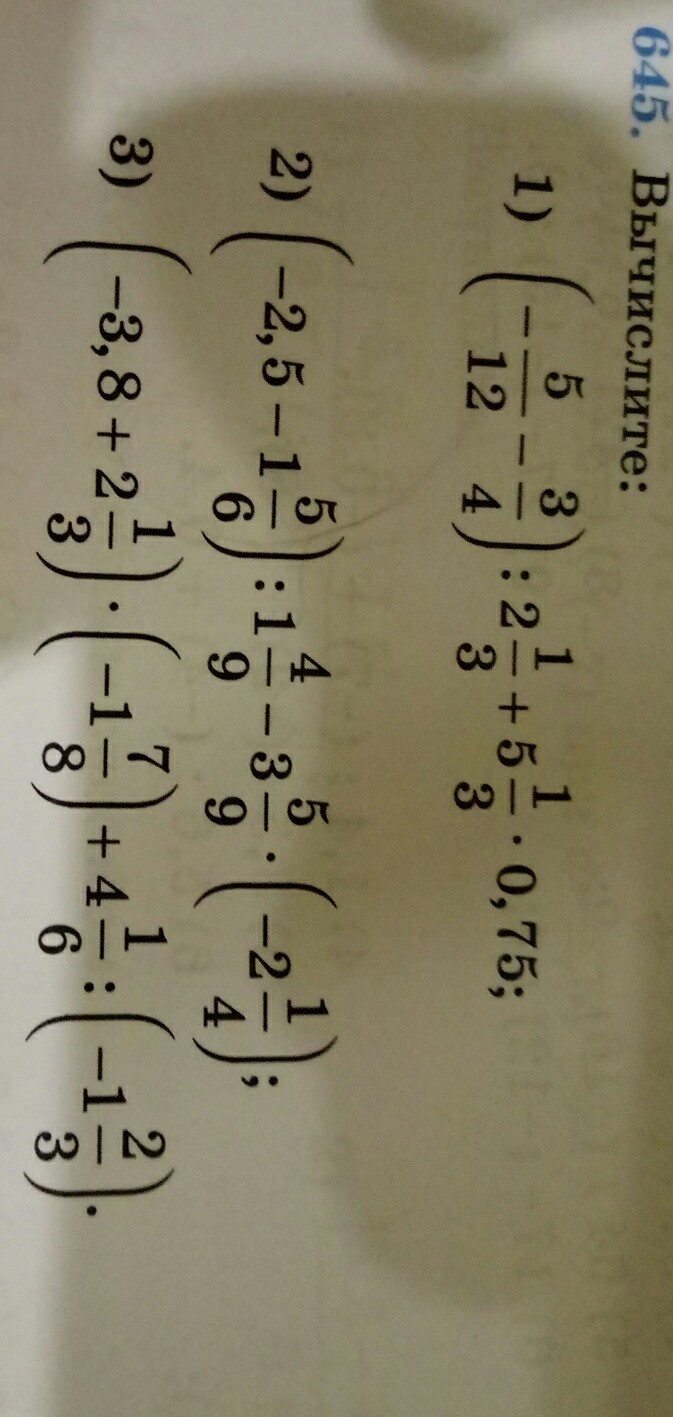 645. Вычислите:
1) (−5/12 − 3/4) : 2 1/3 + 5 1/3 · 0,75;
2) (−2,5 − 1 5/6) : 1 4/9 − 3 5/9 · (−2 1/4);
3) (−3,8 + 2 1/3) · (−1 7/8) + 4 1/6 : (−1 2/3).